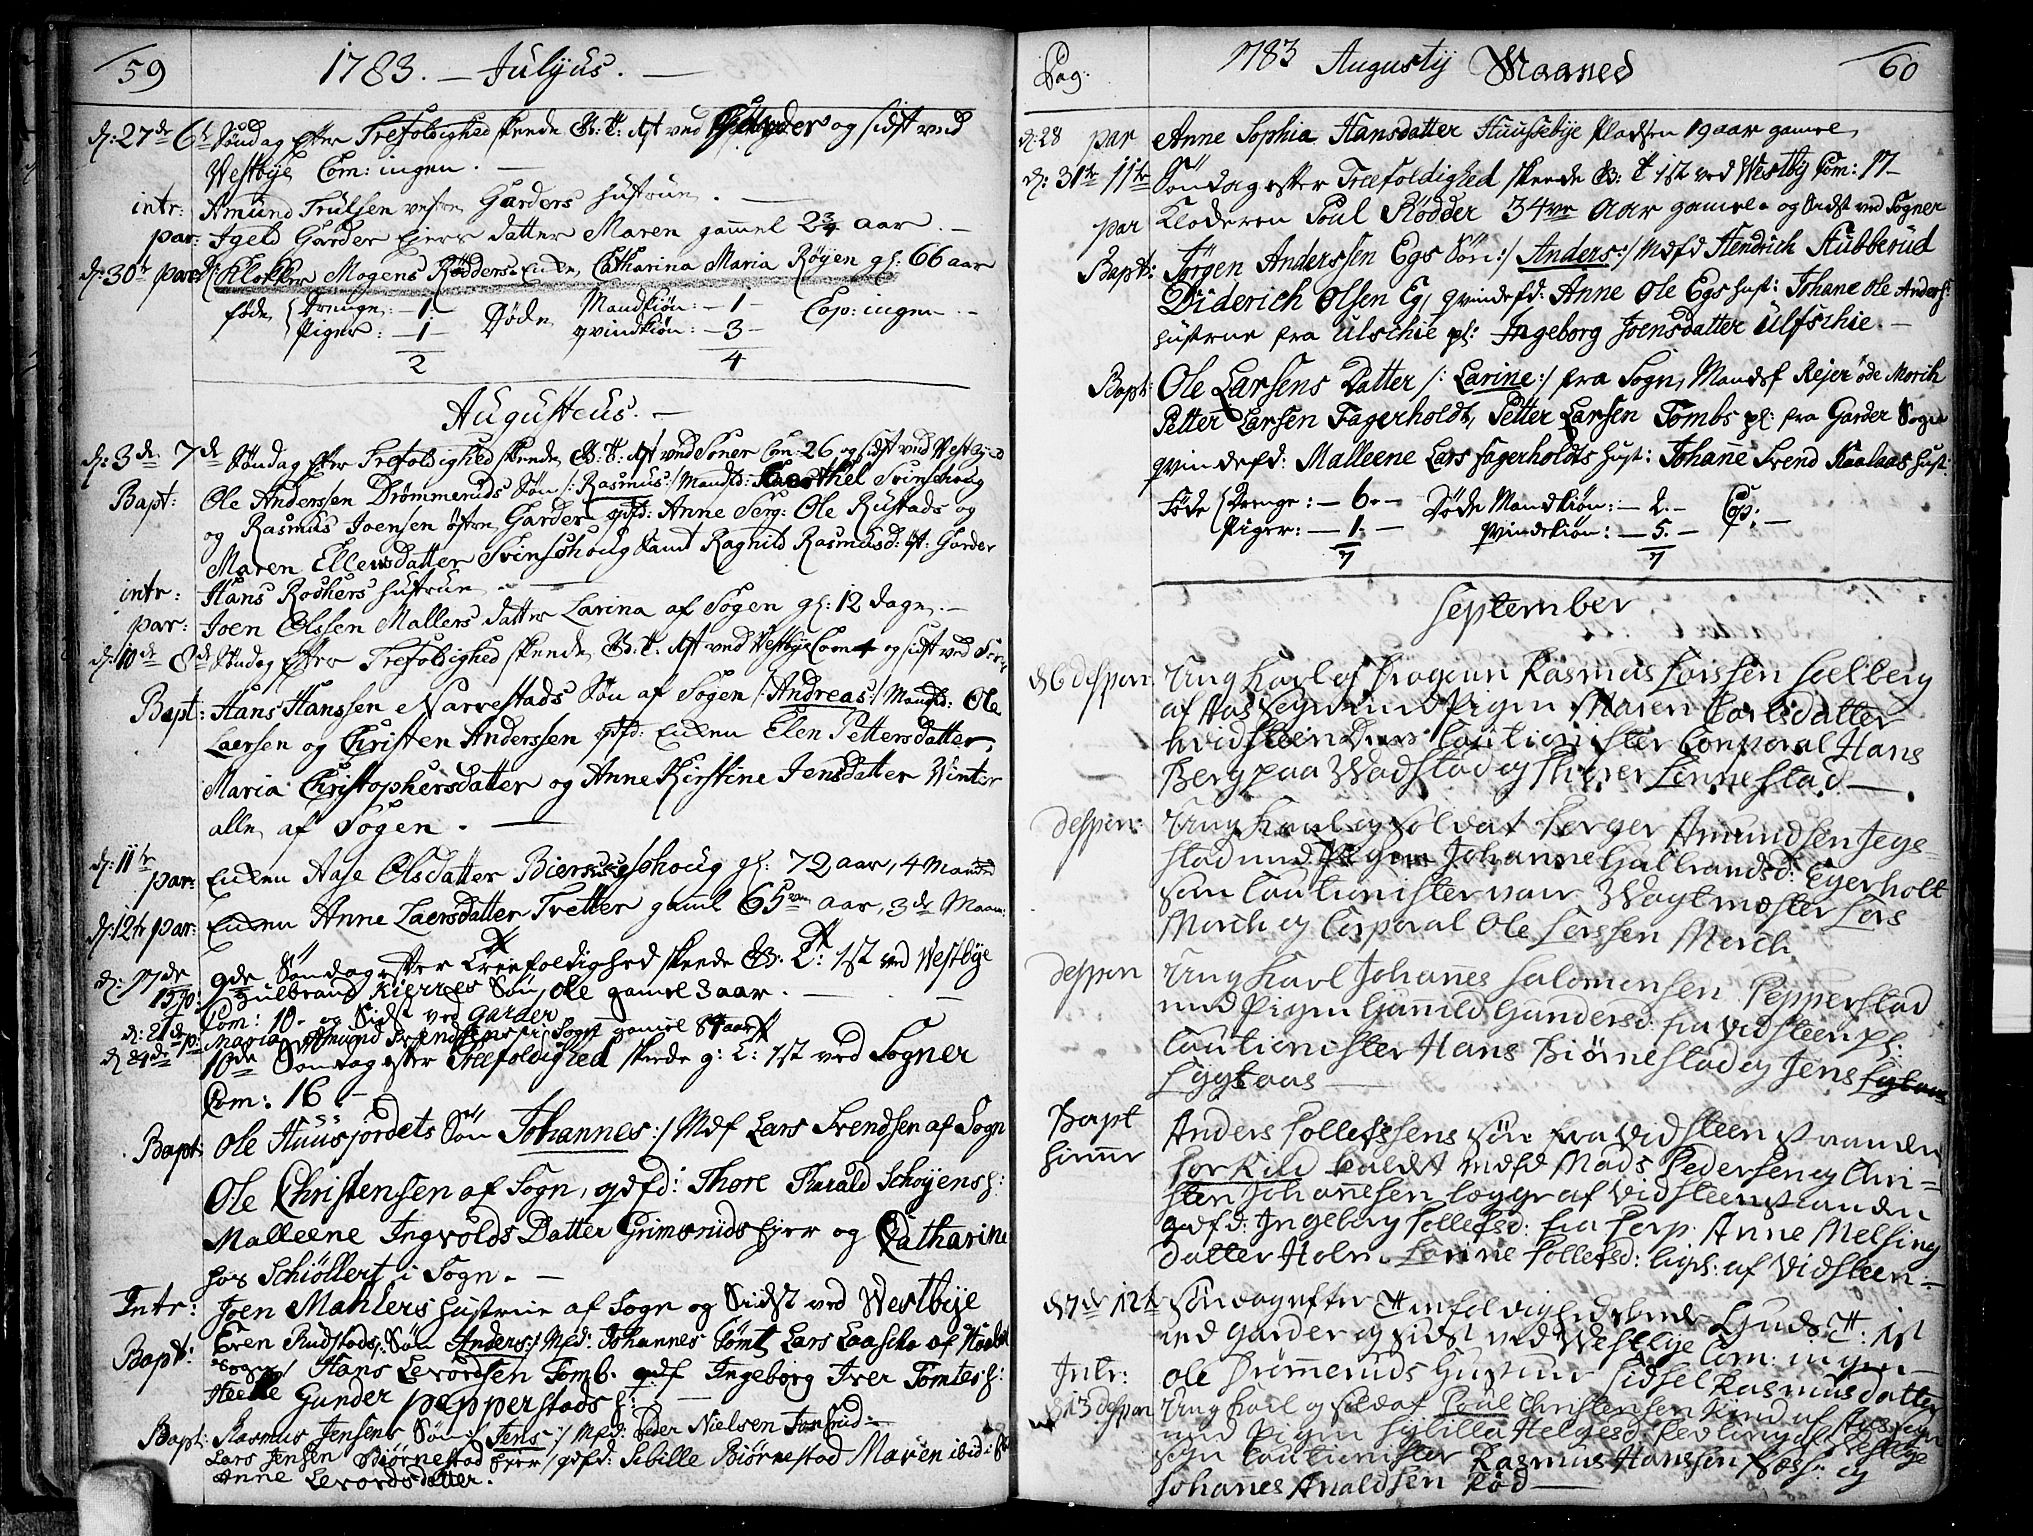 59
1783. — Julyus. —
d: 27de 6te Søndag efter Trefoldighed skeede G: T: 1st ved Garder og sidst ved
Westbye Com: ingen. —
intr: Amund Trulsen vestre Garders hustrue. —
par: Igeld Garder Eiers datter Maren gammel 2¾ aar. —
d: 30te par: Klokker Mogens Rødders Enke Catharina Maria Røyen gl: 66 aar
føde Drenge: — 1 Døde Mandkiøn: — 1 — Cop: ingen —
Piger: — 1 — qvindkiøn: — 3 —
2 4
Augustus. —
d: 3de 7de Søndag efter Trefoldighed skeede G: T: 1st ved Soner Com: 26 og sidst ved Westby
Bapt: Ole Anderssen Drømmeruds Søn /: Rasmus :/ Mandfd: Svinshoug
og Rasmus Joensen østre Garder qfd: Anne Serg: Ole Rustads og
Maren Ellensdatter Svinshoug samt Ragnild Rasmusd: øst: Garder
intr: Hans Rodhers hustrue —
par: Joen Olssen Mallers datter Larina af Sogen gl: 12 dage. —
d: 10de 8de Søndag efter Trefoldighed skeede G: T: 1st ved Westbye Com 4 og sidst ved Soner
Bapt: Hans Hanssen Narvestads Søn af Sogen /: Andreas :/ Mandfd: Ole
Laersen og Christen Anderssen qfd: Enken Elen Pettersdatter,
Maria Christophersdatter og Anne Kirstine Jensdatter Winter
alle af Sogen. —
d: 11te par: Enken Aase Olsdatter gl: 72 aar, 4 Maaned
d: 12te par: Enken Anne Laersdatter Tvetter gaml 65 aar, 3de Maan:
d: 17de 9de Søndag efter Treefoldighed skeede G: T: 1st ved Westbye
Gulbrand Kierres Søn Ole gamel 3 aar. —
Com: 10 — og Sidst ved Garder
d: 21de p: Maria Amund i Sogn gamel aar
d 24de 10de Søndag efter Treefoldighed skeede g: T: 1st ved Sogner
Com: 16. —
Bapt: Ole Huusjordets Søn Johannes :/ Mdf Lars Svendsen af Sogn
Ole Christensen af Sogn, qdfd: Thore Harald Schøyens h:
Malleene Ingvolds Datter Grimsruds Eier og Catharine
hos Schiøllert i Sogn. —
Intr: Joen Mahlers hustrue af Sogn og Sidst ved Westbye
Bapt: Even Rudstads Søn Anders :/ Mfd: Johannes Tømt Lars Laache af
Sogn / Hans Levordsen Tomb. qdf Ingeborg Iver Tømtes h:
Gunder pepperstads h: —
Bapt: Rasmus Jensens Søn /: Jens :/ Mfd: Peder Nielsen
Lars Jensen Biørnestad Eier / qdfd: Sibille Biørnestad Maren ibid:
Anne Levordsdatter.
Pag: 1783 Augusty Maaned 60
d: 28 par Anne Sophia Hansdatter Huusebye Pladsen 19 aar gamel
d: 31te 11te Søndag efter Treefoldighed skeede G: T 1st ved Westby Com: 17 —
par Kloderen Poul Rødder 34 aar gamel. og Sidst ved Sogner
Bapt: Jørgen Anderssen Egs Søn :/ Anders :/ Mdfd Hendrich Stubberud
Diderich Olsen Eg, qvindefd: Anne Ole Egs hust: Johane Ole Anders:
hustrue fra Ulschie pl: Ingeborg Joensdatter Ulfschie. —
Bapt: Ole Larsens Datter /: Larine :/ fra Sogn, Mandsf Rejer øde Morch
Petter Larsen Fagerholdt, Petter Larsen Tombs pl: fra Garder Sogn
qvindefd: Malleene Lars Fagerholdts hust: Johane Svend Kaalaas hust:
Føde Drenge: — 6. — Døde Mandkiøn: — 2. — Cop: —
Piger: — 1. — qvindekiøn: — 5. —
7 7
September
d 6 despon: Ung Karl af Dragoun Rasmus Larssen Selberg
af Aas Sogn med Pigen Maren Carlsdatter
hvidsteen Deres Cautionister Corporal Hans
Berg paa Wadstad og Linnestad —
despon: Ung Karl og Soldat Børger Amundsen Jege-
stad med Pigen Johanne Gulbrandsd: Egerholt
som Cautionister var Wagtmester Lars
Morch og Corporal Ole Larssen Morch.
despon Ung Karl Johannes Salomensen Pepperstad
med Pigen Gunnild Gundersd: fra Vidsteen Pl:
Cautionister Hans Biørnestad og Jens
Lygtaas —
Bapt Anders Tollefssens Søn fra Vidsteen stranden
hiemme Torkild kaldet Mdfd Mads Pedersen og Chri-
sten Johannesen begge af Vidsteenstranden
qdfd: Ingeborg Tollefsd: fra Anne Melsing
datter Holm Larine Tollefsd: af Vidsteen —
d 7de 12te Søndag efter Treefoldighed skeede Guds T: 1st
ved Garder og sidst ved Westbye Com: ingen —
Intr: Ole Drømmeruds Hustrue Sidsel Rasmusdatter
d 13 despon Ung Karl og Soldat Poul Christensen af Aas Sogn
med Pigen Sybilla Helgesd:
Sogn Cautionister Rasmus Hanssen og
Johannes Rød —